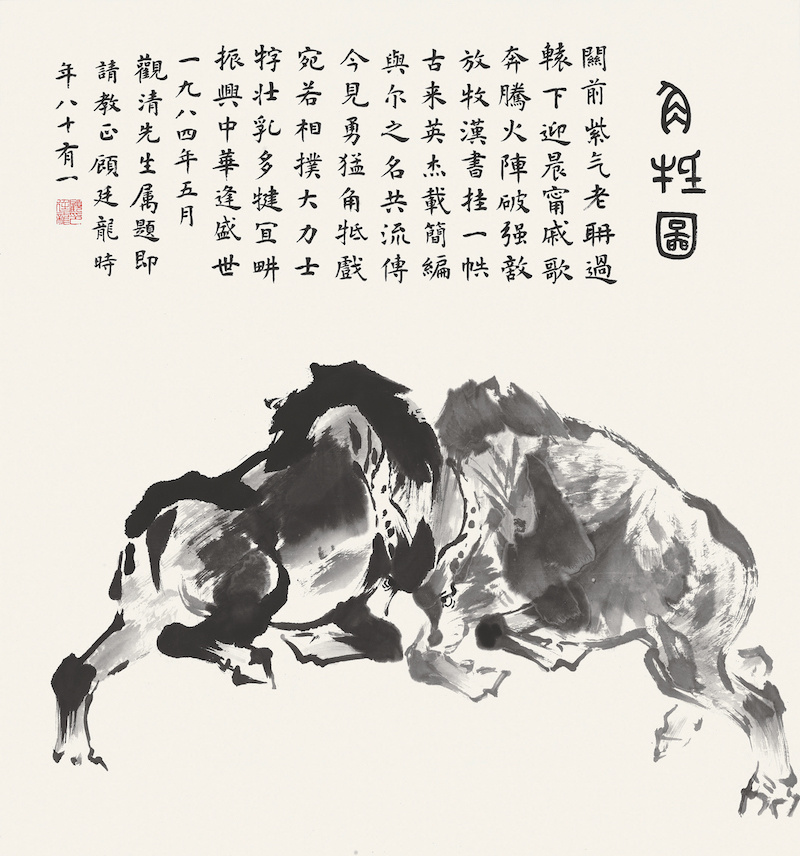 角牴圖
關前紫气老聃過
轅下迎晨甯戚歌
奔騰火陣破强敵
放牧漢書挂一帙
古来英杰載簡編
與尔之名共流傳
今見勇猛角牴戲
宛若相撲大力士
牸壯乳多犍宜畊
振興中華逢盛世
一九八四年五月
觀清先生属題即
請教正顧廷龍時
年八十有一